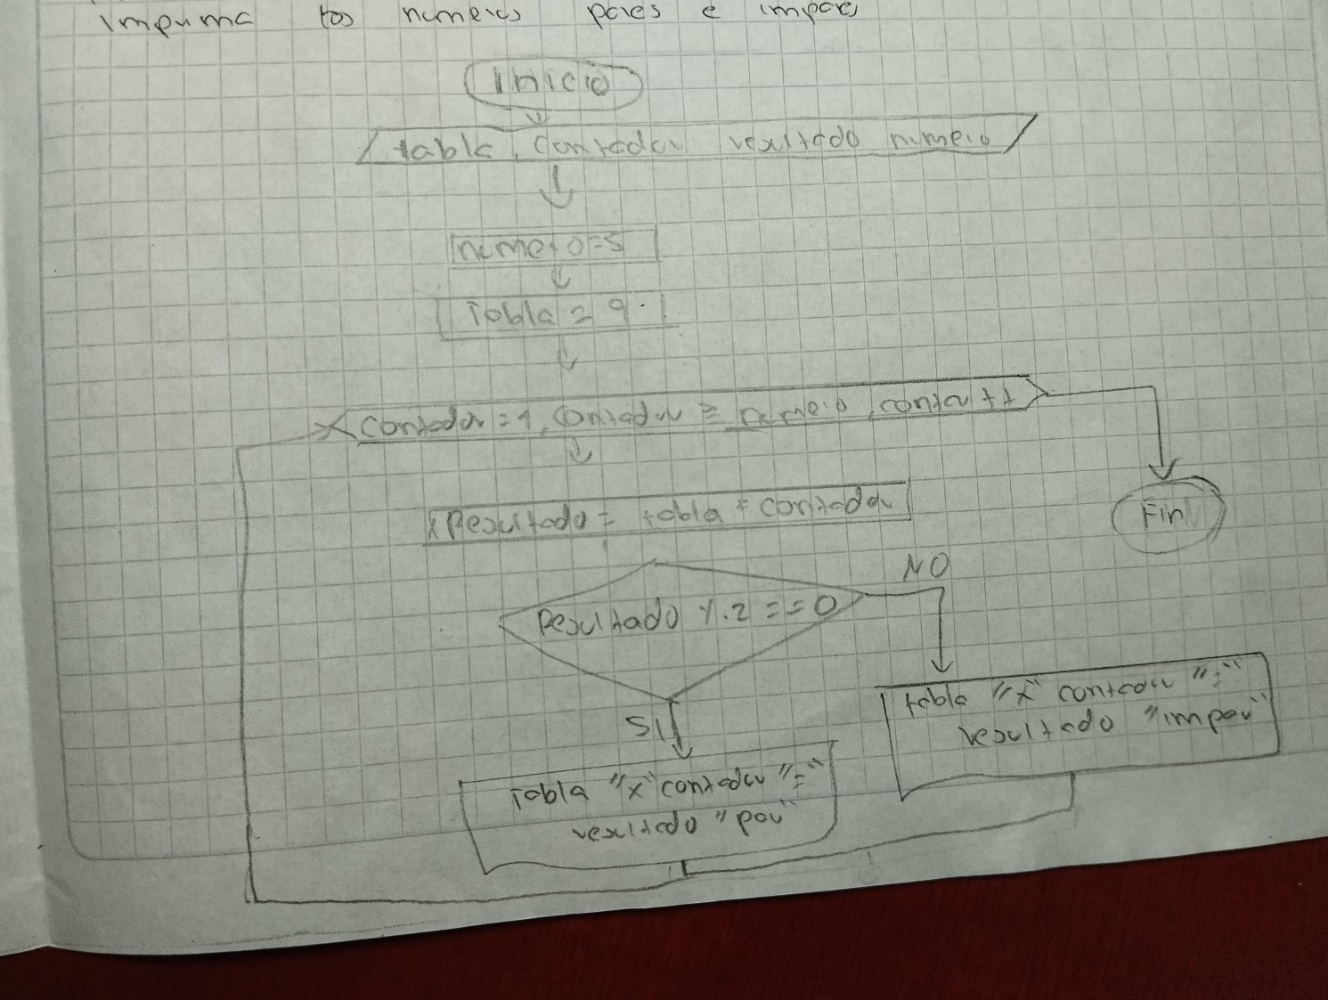 imprima los numeros pares e impares
Inicio
tabla, contador resultado numero
numero=5
Tabla = 9
contador = 1, contador ≥ numero, conta ++
Resultado = tabla * contador
Resultado %.2 == 0
NO
SI
Fin
tabla "x" contaor "="
resultado "impar"
Tabla "x" contador "="
resultado "par"